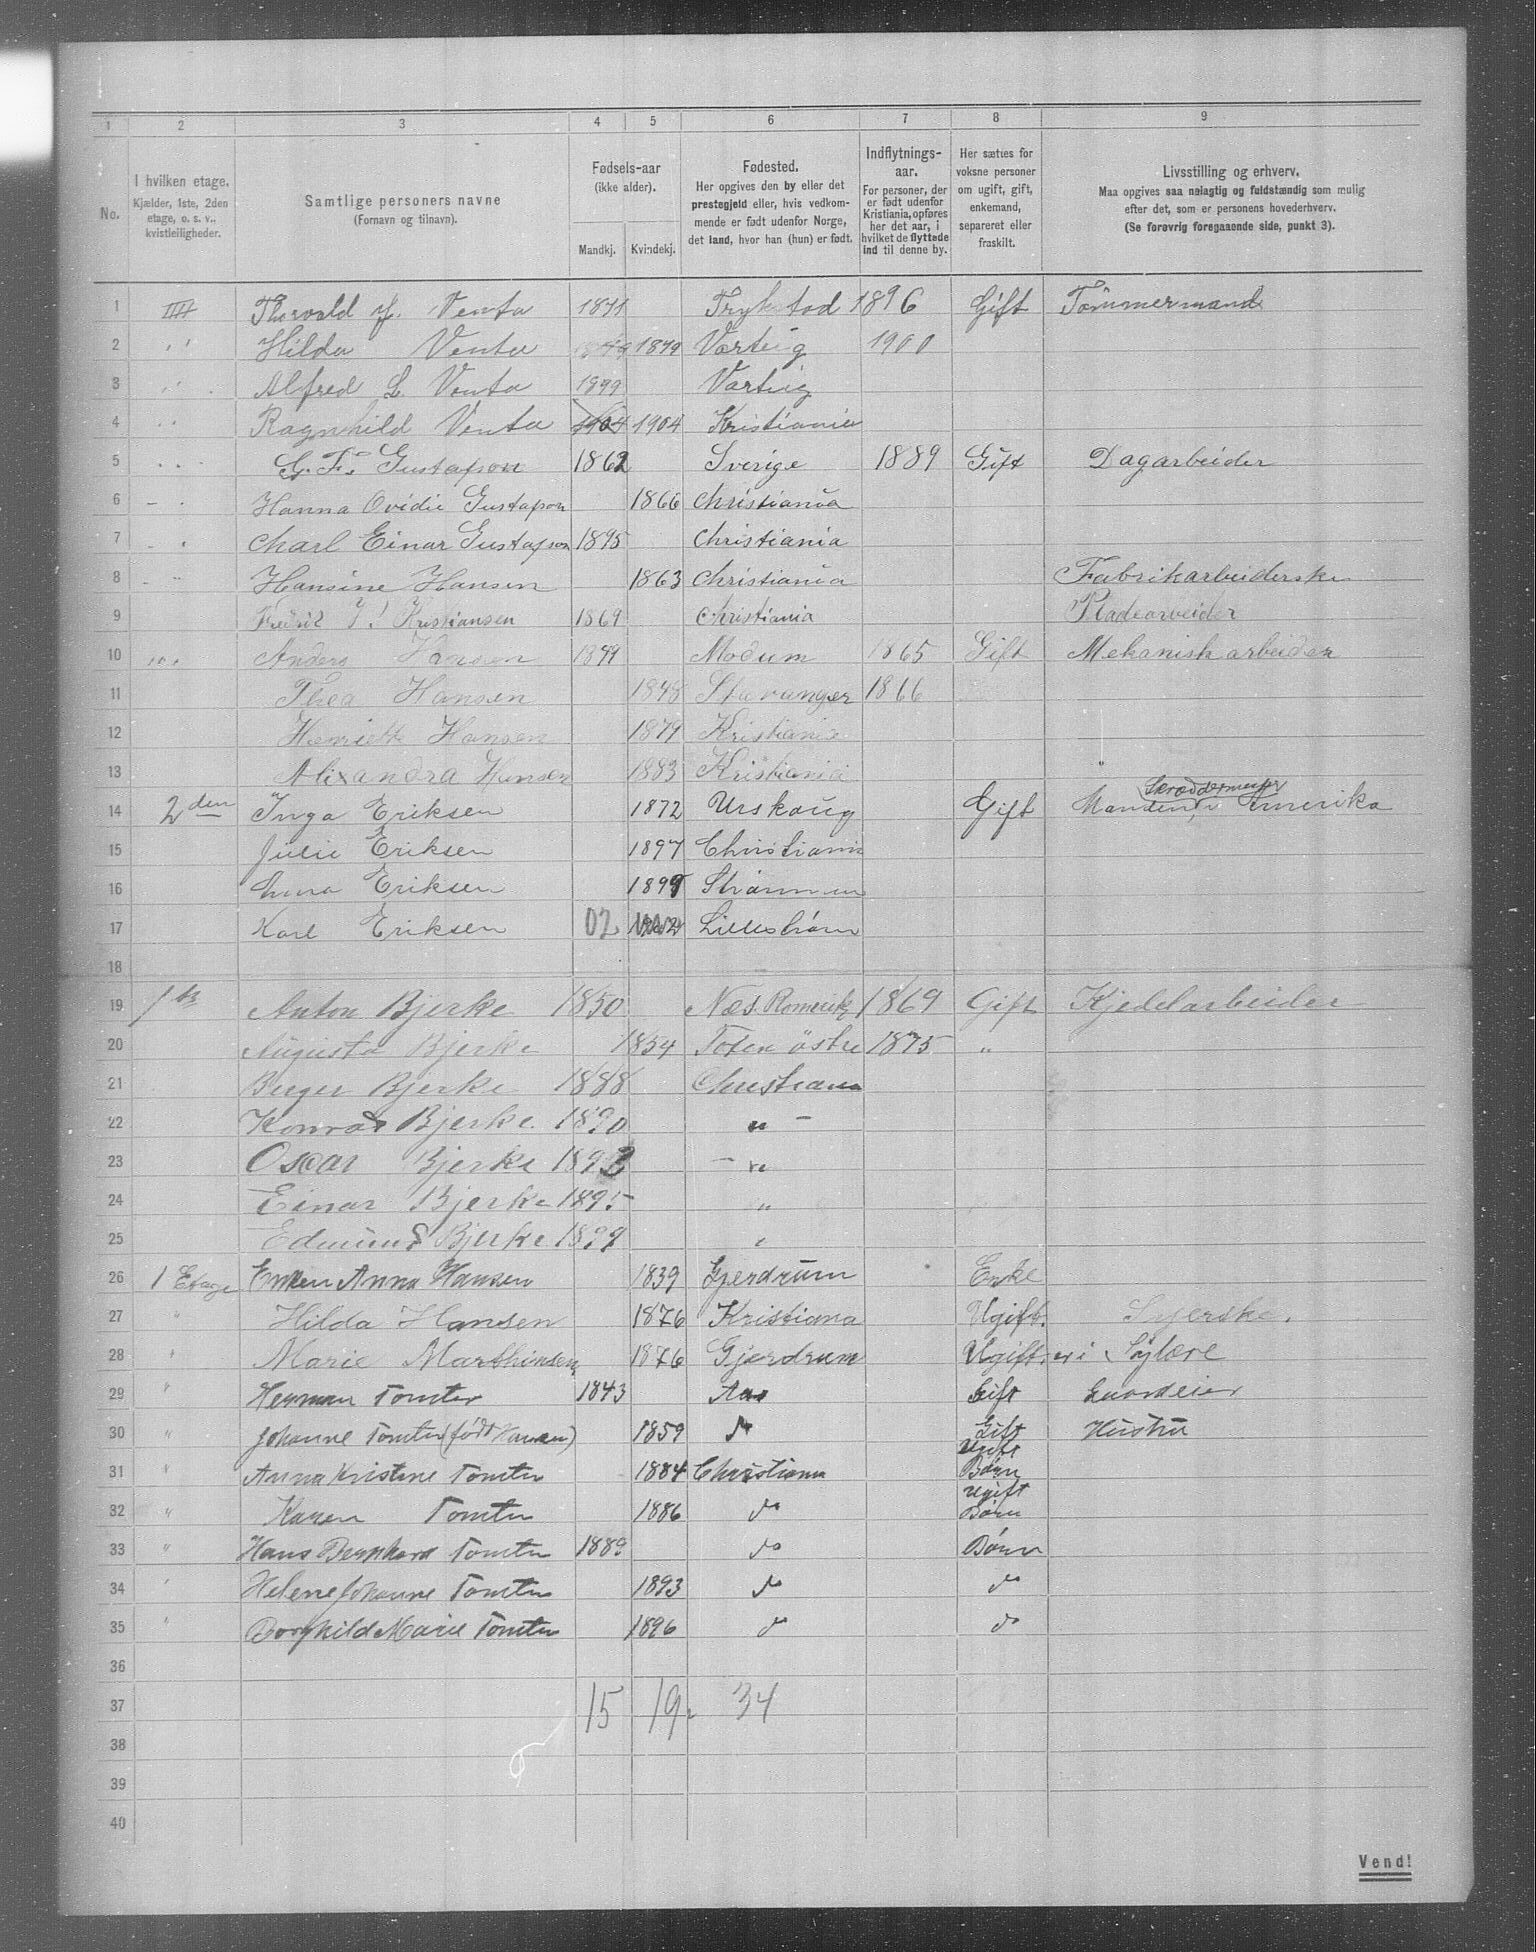 1 2 3 4 5 6 7 8 9
No.
I hvilken etage.
Kjælder, 1ste, 2den
etage, o. s. v.,
kvistleiligheder.
Samtlige personers navne
(Fornavn og tilnavn).
Fødsels-aar
(ikke alder).
Mandkj. Kvindekj.
Fødested.
Her opgives den by eller det
prestegjeld eller, hvis vedkom-
mende er født udenfor Norge,
det land, hvor han (hun) er født.
Indflytnings-
aar.
For personer, der
er født udenfor
Kristiania, opføres
her det aar, i
hvilket de flyttede
ind til denne by.
Her sættes for
voksne personer
om ugift, gift,
enkemand,
separeret eller
fraskilt.
Livsstilling og erhverv.
Maa opgives saa nøiagtig og fuldstændig som mulig
efter det, som er personens hovederhverv.
(Se forøvrig foregaaende side, punkt 3).
1 III Thorvald Venta 1871 Trykstad 1896 Gift Tømmermand
2 " Hilda Venta 1879 Varteig 1900
3 " Alfred L Venta 1899 Varteig
4 " Ragnhild Venta 1904 1904 Kristiania
5 " G. F. Gustafson 1862 Sverige 1889 Gift Dagarbeider
6 " Hanna Ovidie Gustafson 1866 Christiania
7 " Charl Einar Gustafson 1895 Christiania
8 " Hansine Hansen 1863 Christiania Fabrikarbeiderske
9 Fredrik Kristiansen 1869 Christiania Pladearveider
10 " Anders Hansen Modum 1865 Gift Mekanisk arbeider
11 Thea Hansen 1848 Stavanger 1866
12 Henriette Hansen 1879 Kristiania
13 Alixandra Hansen 1883 Kristiania
14 2den Inga Eriksen 1872 Urskoug Gift Manden i Amerika
Skræddermester
15 Julie Eriksen 1897 Christiania
16 Anna Eriksen 1899 Strømmen
17 Karl Eriksen 02 Lillestrøm
18
19 1ste Anton Bjerke 1850 Næs Romerike 1869 Gift Kjedelarbeider
20 Augusta Bjerke 1854 Toten østre 1875 "
21 Birger Bjerke 1888 Christiania
22 Konrad Bjerke 1890 " –
23 Oscar Bjerke 1893 – "
24 Einar Bjerke 1895 "
25 Edmund Bjerke 1897 "
26 1 Etage Enken Anna Hansen 1839 Gjerdrum Enke
27 " Hilda Hansen 1876 Kristiana Ugift. Syerske.
28 " Marie Marthinsen 1876 Gjerdrum Ugift. er i Sylære
29 " Herman Tomter 1843 Aas Gift Gaardeier
30 " Johanne Tomter (født Hansen) 1859 do Gift Hustru
31 " Anna Kristine Tomter 1884 Christiana Ugift Børn
32 " Karen Tomter 1886 do Ugift Børn
33 " Hans Bernhard Tomter 1889 do Børn
34 " Helene Johanne Tomter 1893 do do
35 " Borghild Marie Tomter 1896 do do
36
37 15 19 34
38
39
40
Vend!